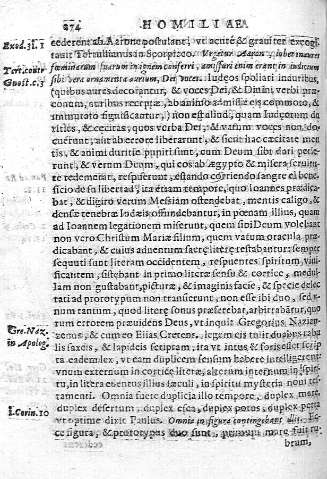 274 HOMILIAE
Exod. 32. 1 cederent ab Aarone postulant; ut acutè & graviter excogi
Tert. contr. tavit Tertullianus in Scorpiaco. Vegetur Aaron, & iubet inaures
Gnost. c. 3 fœminarum suarum in ignem conferri, amissuri enim erant in iudicium
sibi vera ornamenta aurium, Dei voces. Iudæos spoliari inauribus,
(quibus aures decorantur, & voces Dei, & Divini verbi præ
conum, auribus receptæ, ab animo admissæ eis commodè, &
immutatò significantur,) non est aliud, quam Iudæorum
titles, & cecitas, quos verba Dei, & vatum voces non do-
cuerint, aut ab errore liberarint, & sicut hæc cæcitate men
tis, & animi duritie impii sunt, cum Deum sibi dari pete-
rent, & verum Deum, qui eos ab Ægypto & misera servitu
te redemerat, respuerent, estando corriendo sangre el bene-
ficio de su libertad, ita etiam tempore, quo Ioannes prædica
bat, & digito verum Messiam ostendebat, mentis caligo, &
densæ tenebræ Iudæis offundebantur, in pœnam illius, quam
ad Ioannem legationem miserunt, quem sibi Deum volebant
non vero Christum Mariæ filium, quem vatum oracula præ
dicabant, & cuius adventum ferè litteræ testabantur semper
sequuti sunt literam occidentem, respuentes spiritum, vivi-
ficantem, sistebant in primo literæ sensu & cortice, medul-
lam non gustabant, picturæ, & imaginis facie, & specie delec
tati ad prototypum non transierunt, non esse ibi duo, sed u-
num tantum, quod literæ sonus præseferebat, arbitrabātur, quo
rum errorem prævidens Deus, vt inquit Gregorius Nazian-
Gre. Naz. zenus, & cum eo Elias Cretens. legem cis tulit duplici tabu
in Apolog. lis saxeis, & lapideis insculptam, ita vt intus & foris esset scrip
ta eadem lex, vt eam duplicem sensum habere intelligerent,
vnum externum in cortice literæ, alterum internum in spiri-
tu, in litera euentus illius sæculi, in spiritu mysteria novi tes-
tamenti. Omnia fuere duplicia illo tempore, duplex mare,
1. Corin. 10 duplex desertum, duplex esca, duplex potus, duplex petra
vt optime dixit Paulus. Omnia in figura contingebant illis. Ec
ce figura, & prototypus duo sunt, primum mare fuit ru-
brum,